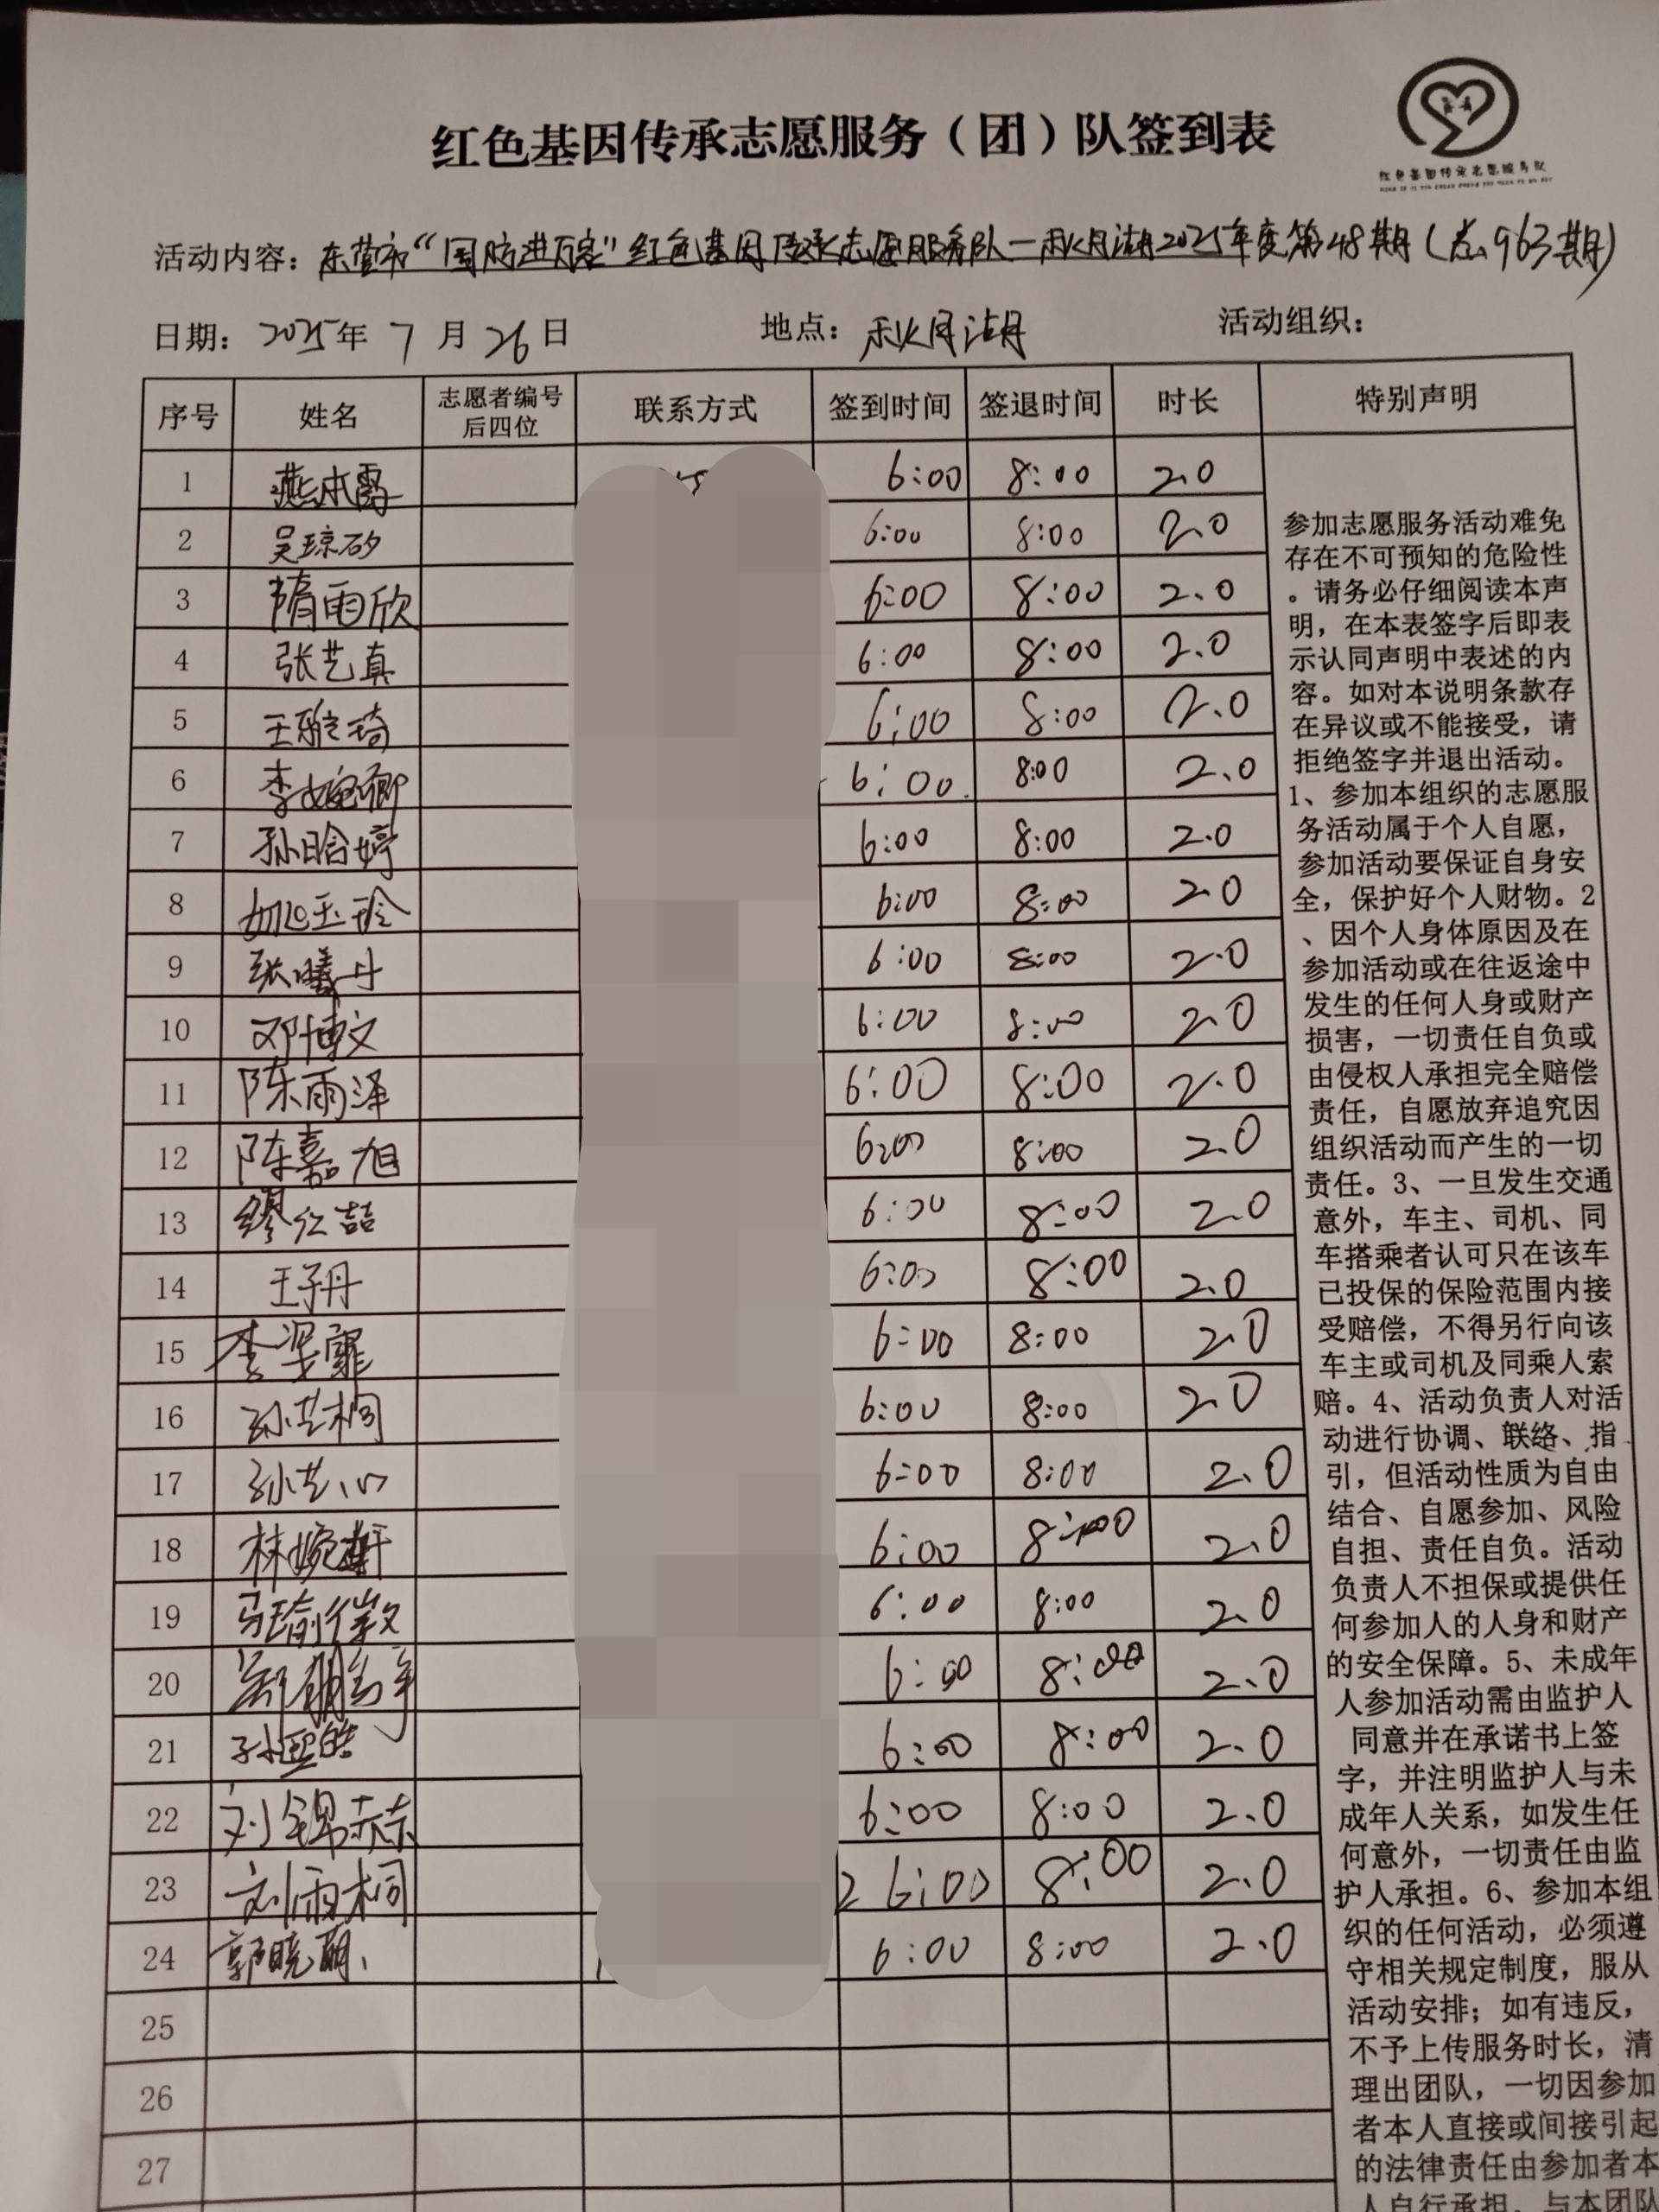 红色基因传承志愿服务（团）队签到表
红色基因传承志愿服务队
活动内容：东营市“国防进万家”红色基因传承志愿服务队—秋月湖2025年度第48期（总963期）
日期：2025年7月26日 地点：秋月湖 活动组织：
序号 姓名 志愿者编号后四位 联系方式 签到时间 签退时间 时长 特别声明
1 燕本霱 6:00 8:00 2.0
2 吴琼矽 6:00 8:00 2.0
3 隋雨欣 6:00 8:00 2.0
4 张艺真 6:00 8:00 2.0
5 王雅琦 6:00 8:00 2.0
6 李婉卿 6:00 8:00 2.0
7 孙晗婷 6:00 8:00 2.0
8 玉玲 6:00 8:00 2.0
9 张曦丹 6:00 8:00 2.0
10 邓博文 6:00 8:00 2.0
11 陈雨泽 6:00 8:00 2.0
12 陈嘉旭 6:00 8:00 2.0
13 缪仁喆 6:00 8:00 2.0
14 王子丹 6:00 8:00 2.0
15 李梁霏 6:00 8:00 2.0
16 孙艺桐 6:00 8:00 2.0
17 孙艺心 6:00 8:00 2.0
18 林婉 6:00 8:00 2.0
19 马瑜徽 6:00 8:00 2.0
20 6:00 8:00 2.0
21 孙熙皓 6:00 8:00 2.0
22 刘锦赫 6:00 8:00 2.0
23 刘雨桐 2 6:00 8:00 2.0
24 郭晓萌 6:00 8:00 2.0
25
26
27
参加志愿服务活动难免
存在不可预知的危险性
。请务必仔细阅读本声
明，在本表签字后即表
示认同声明中表述的内
容。如对本说明条款存
在异议或不能接受，请
拒绝签字并退出活动。
1、参加本组织的志愿服
务活动属于个人自愿，
参加活动要保证自身安
全，保护好个人财物。2
、因个人身体原因及在
参加活动或在往返途中
发生的任何人身或财产
损害，一切责任自负或
由侵权人承担完全赔偿
责任，自愿放弃追究因
组织活动而产生的一切
责任。3、一旦发生交通
意外，车主、司机、同
车搭乘者认可只在该车
已投保的保险范围内接
受赔偿，不得另行向该
车主或司机及同乘人索
赔。4、活动负责人对活
动进行协调、联络、指
引，但活动性质为自由
结合、自愿参加、风险
自担、责任自负。活动
负责人不担保或提供任
何参加人的人身和财产
的安全保障。5、未成年
人参加活动需由监护人
同意并在承诺书上签
字，并注明监护人与未
成年人关系，如发生任
何意外，一切责任由监
护人承担。6、参加本组
织的任何活动，必须遵
守相关规定制度，服从
活动安排；如有违反，
不予上传服务时长，清
理出团队，一切因参加
者本人直接或间接引起
的法律责任由参加者本
人自行承担，与本团队